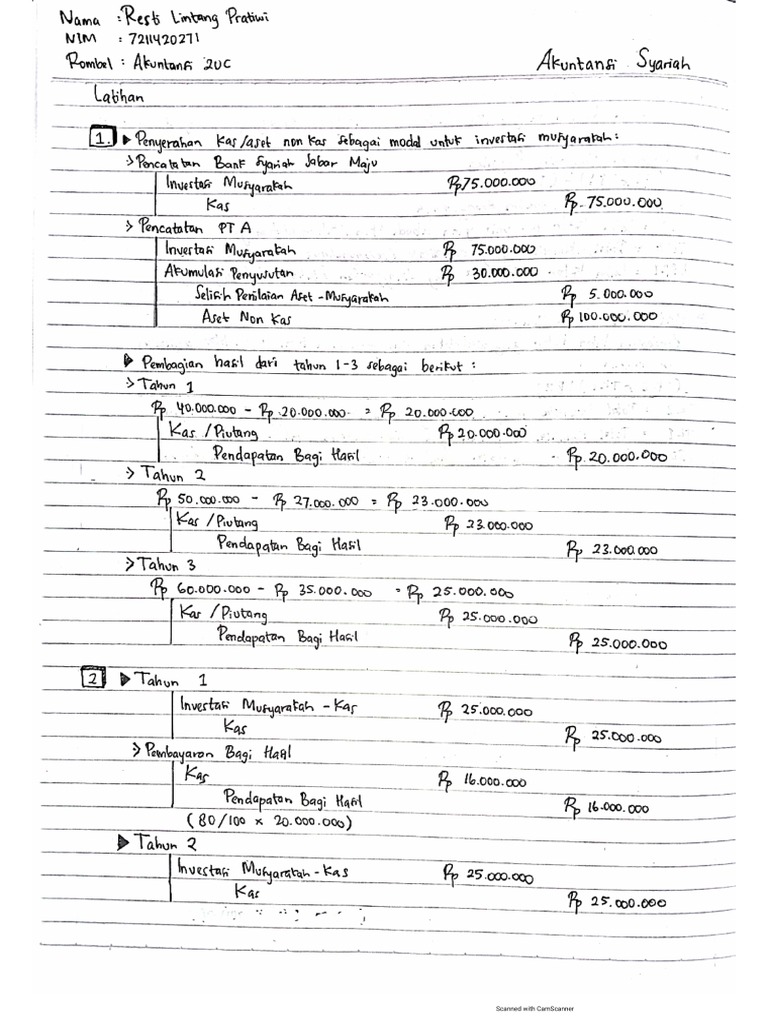 Nama : Resti Lintang Pratiwi
NIM : 7211420271
Rombel : Akuntansi 2UC Akuntansi Syariah
Latihan
1. ▶ Penyerahan Kas/aset non kas sebagai modal untuk investasi musyarakah:
> Pencatatan Bank Syariah Sabar Maju
Investasi Musyarakah Rp75.000.000
Kas Rp. 75.000.000
> Pencatatan PT A
Investasi Musyarakah Rp 75.000.000
Akumulasi Penyusutan Rp 30.000.000
Selisih Penilaian Aset - Musyarakah Rp 5.000.000
Aset Non Kas Rp 100.000.000
▶ Pembagian hasil dari tahun 1-3 sebagai berikut :
> Tahun 1
Rp 40.000.000 - Rp 20.000.000 = Rp 20.000.000
Kas / Piutang Rp 20.000.000
Pendapatan Bagi Hasil Rp 20.000.000
> Tahun 2
Rp 50.000.000 - Rp 27.000.000 = Rp 23.000.000
Kas / Piutang Rp 23.000.000
Pendapatan Bagi Hasil Rp 23.000.000
> Tahun 3
Rp 60.000.000 - Rp 35.000.000 = Rp 25.000.000
Kas / Piutang Rp 25.000.000
Pendapatan Bagi Hasil Rp 25.000.000
2 ▶ Tahun 1
Investasi Musyarakah - Kas Rp 25.000.000
Kas Rp 25.000.000
> Pembayaran Bagi Hasil
Kas Rp 16.000.000
Pendapatan Bagi Hasil Rp 16.000.000
(80/100 x 20.000.000)
▶ Tahun 2
Investasi Musyarakah - Kas Rp 25.000.000
Kas Rp 25.000.000
Scanned with CamScanner